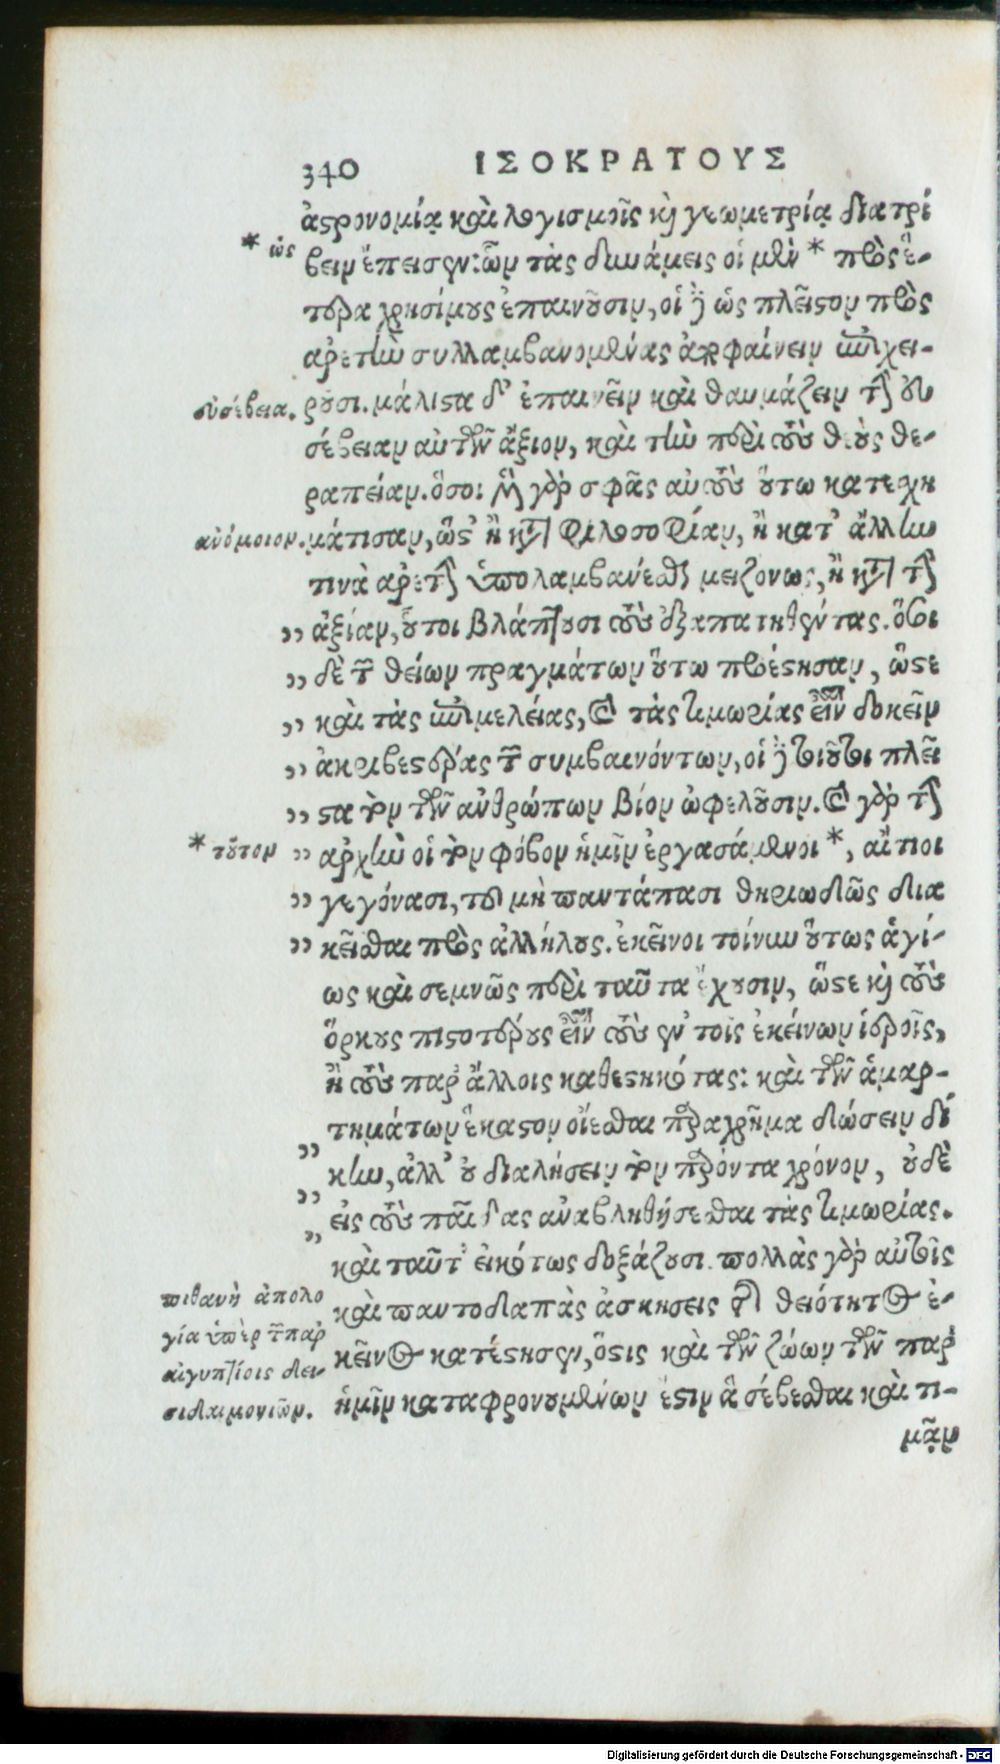 340 ΙΣΟΚΡΑΤΟΥΣ
ἀστρονομίᾳ καὶ λογισμοῖς καὶ γεωμετρίᾳ διατρί
* ὡς
βειν ἔπεισεν: ὧν τὰς δυνάμεις οἱ μὲν * πρὸς ἕ-
τερα χρησίμους ἐπαινοῦσιν, οἱ δὲ ὡς πλεῖστον πρὸς
ἀρετὴν συλλαμβανομένας ἀποφαίνειν ἐπιχει-
εὐσέβεια.
ροῦσι. μάλιστα δ' ἐπαινεῖν καὶ θαυμάζειν τὴν εὐ
σέβειαν αὐτῶν ἄξιον, καὶ τὴν περὶ τοὺς θεοὺς θε-
ραπείαν. ὅσοι μὲν γὰρ σφᾶς αὐτοὺς οὕτω κατεχη
ἀνόμοιον.
μάτισαν, ὥστ' ἢ κατὰ φιλοσοφίαν, ἢ κατ' ἄλλην
τινὰ ἀρετὴν ὑπολαμβάνεσθαι μειζόνως, ἢ κατὰ τὴν
„ ἀξίαν, οὗτοι βλάπτουσι τοὺς ἐξαπατηθέντας. ὅσοι
„ δὲ τῶν θείων πραγμάτων οὕτω προέστησαν, ὥστε
„ καὶ τὰς ἐπιμελείας, καὶ τὰς τιμωρίας εἶναι δοκεῖν
„ ἀκριβεστέρας τῶν συμβαινόντων, οἱ δὲ τοιοῦτοι πλεῖ
„ στα τὸν τῶν ἀνθρώπων βίον ὠφελοῦσιν. καὶ γὰρ τὴν
* τοῦτον
„ ἀρχὴν οἱ τὸν φόβον ἡμῖν ἐργασάμενοι *, αἴτιοι
„ γεγόνασι, τοῦ μὴ παντάπασι θηριωδῶς δια
„ κεῖσθαι πρὸς ἀλλήλους. ἐκεῖνοι τοίνυν οὕτως ἁγί-
ως καὶ σεμνῶς περὶ ταῦτα ἔχουσιν, ὥστε καὶ τοὺς
ὅρκους πιστοτέρους εἶναι τοὺς ἐν τοῖς ἐκείνων ἱεροῖς,
ἢ τοὺς παρ' ἄλλοις καθεστηκότας: καὶ τῶν ἁμαρ-
„ τημάτων ἕκαστον οἴεσθαι παραχρῆμα δώσειν δί
„ κην, ἀλλ' οὐ διαλήσειν τὸν παρόντα χρόνον, οὐδὲ
„ εἰς τοὺς παῖδας ἀναβληθήσεσθαι τὰς τιμωρίας.
καὶ ταῦτ' εἰκότως δοξάζουσι. πολλὰς γὰρ αὐτοῖς
πιθανὴ ἀπολο
γία ὑπὲρ τῶν παρ'
αἰγυπτίοις δει-
σιδαιμονιῶν.
καὶ παντοδαπὰς ἀσκήσεις τῆς θειότητος ἐ-
κεῖνος κατέστησεν, ὅστις καὶ τῶν ζώων τῶν παρ'
ἡμῖν καταφρονουμένων ἔστιν ἃ σέβεσθαι καὶ τι-
μᾷν
Digitalisierung gefördert durch die Deutsche Forschungsgemeinschaft - DFG